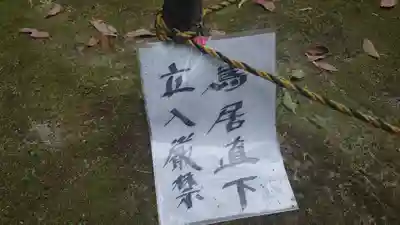 鳥居直下
立入厳禁